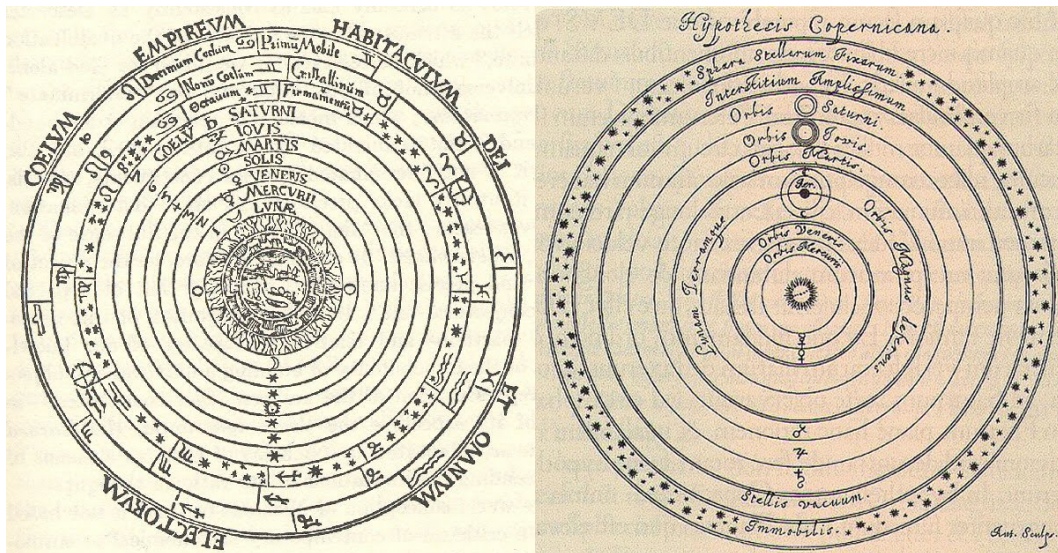 COELVM EMPIREVM HABITACVLVM DEI ET OMNIVM ELECTORVM
Decimum Coelum Primũ Mobile
Nonũ Coelum Cristallinum
Octauum Firmamentũ
COELV SATVRNI
IOVIS
MARTIS
SOLIS
VENERIS
MERCVRII
LVNÆ
Hypothesis Copernicana.
Sphæra Stellarum Fixarum.
Interstitium Amplissimum
Orbis Saturni.
Orbis Jovis.
Orbis Martis.
Ter.
Orbis Magnus deferens
Lunam Terramque
Orbis Veneris
Orbis Mercurii
Stellis vacuum.
Immobilis.